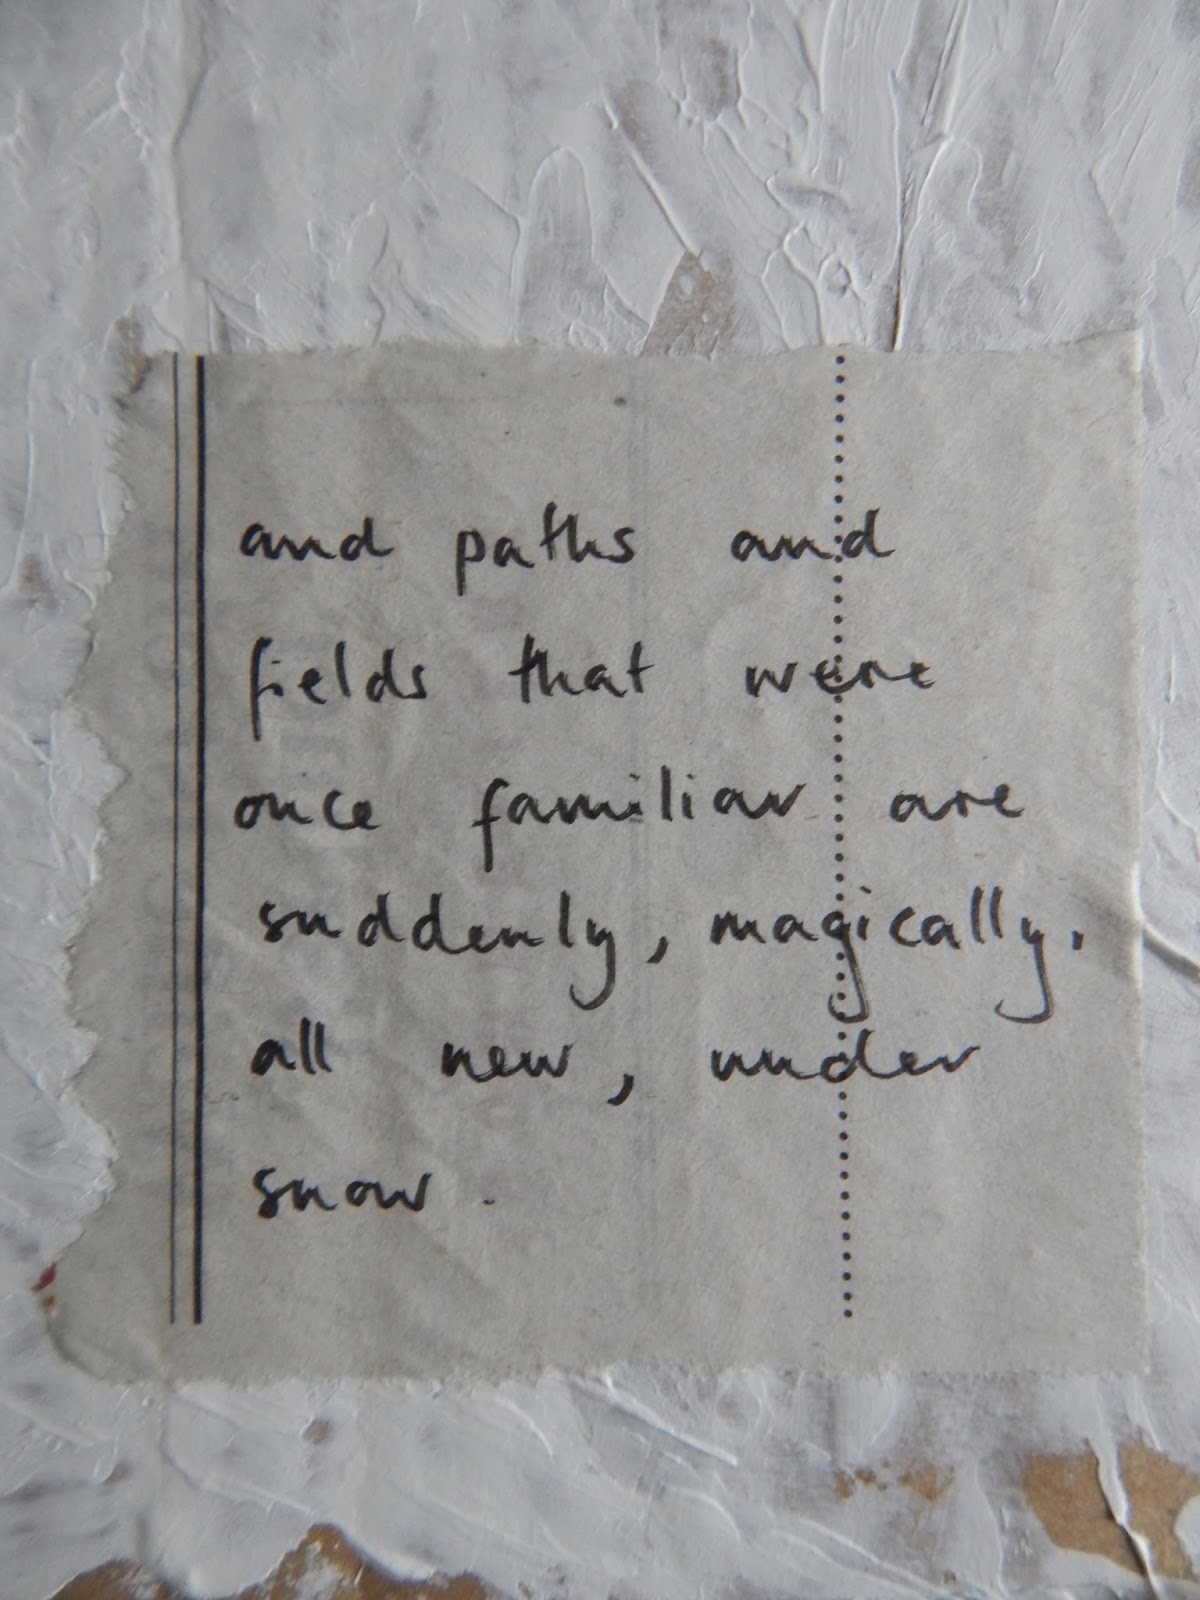 and paths and
fields that were
once familiar are
suddenly, magically,
all new, under
snow.